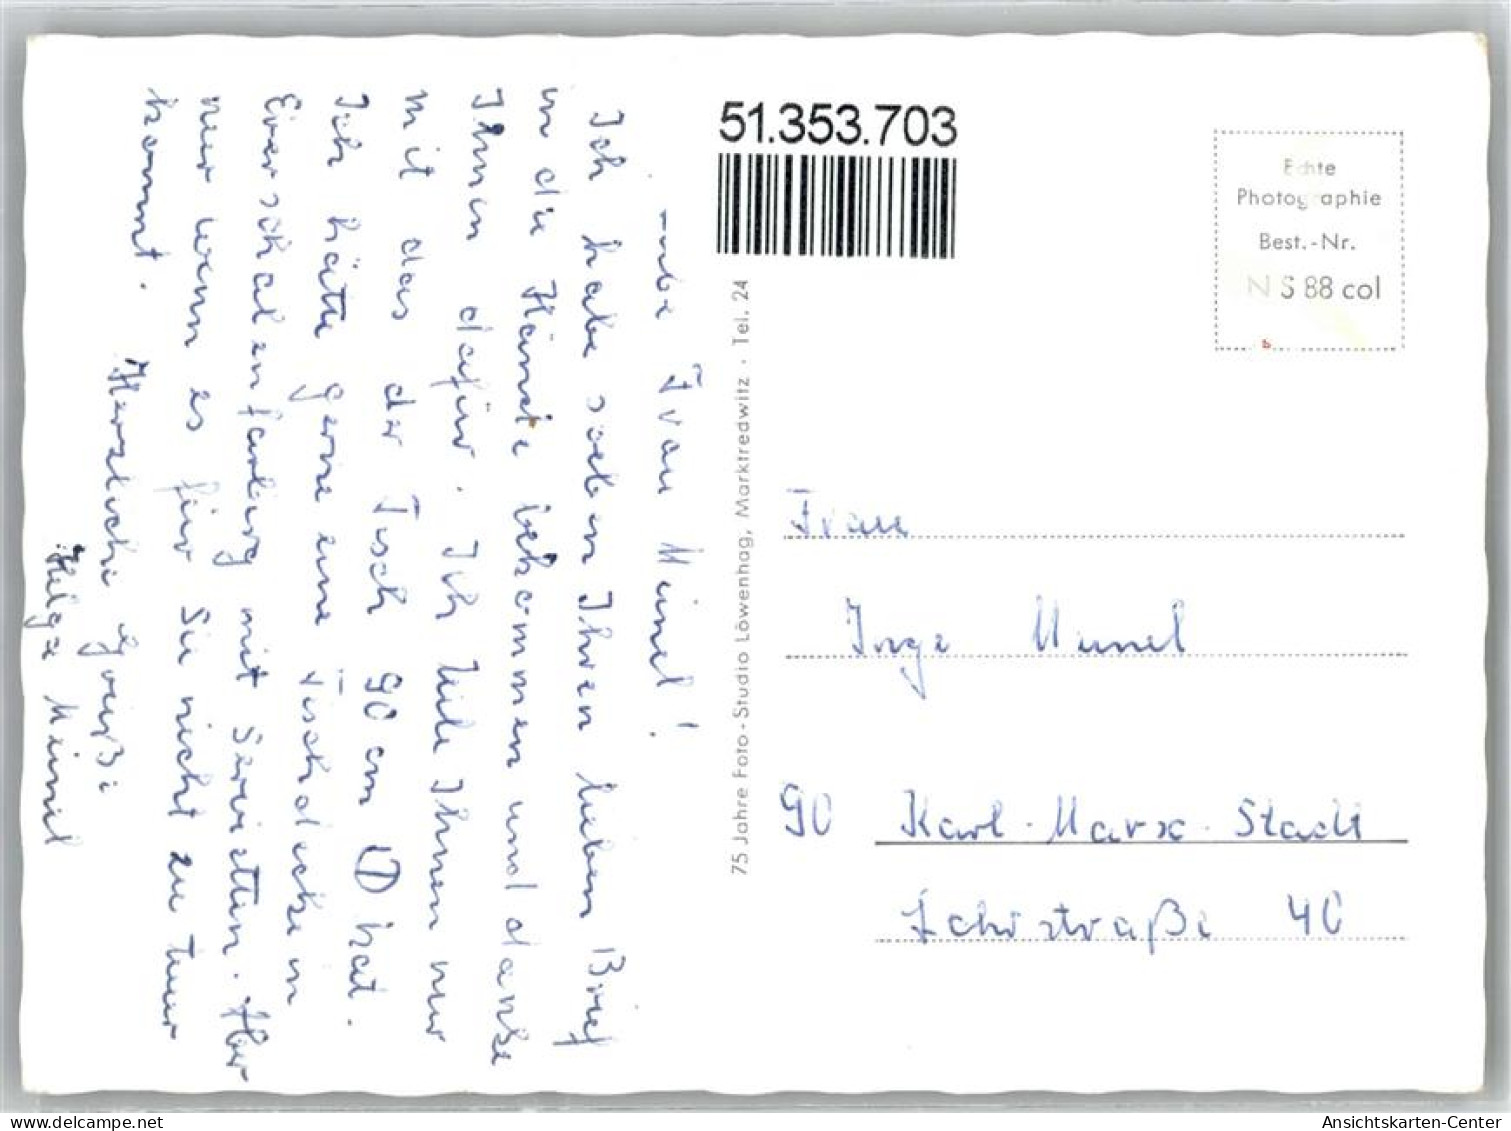 Liebe Frau Meinel!
Ich habe soeben Ihren lieben Brief
in die Hände bekommen und danke
Ihnen dafür. Ich teile Ihnen nur
mit das der Tisch 90 cm Ø hat.
Ich hätte gerne eine Tischdecke in
Eierschalenfarbig mit Servietten. Aber
nur wenn es für Sie nicht zu teuer
kommt.
Herzliche Grüße
Helga Meinel
51.353.703
75 Jahre Foto-Studio Löwenhag, Marktredwitz · Tel. 24
Echte
Photographie
Best.-Nr.
N S 88 col
b
Frau
Inge Meinel
90 Karl-Marx-Stadt
straße 40
www.delcampe.net
Ansichtskarten-Center